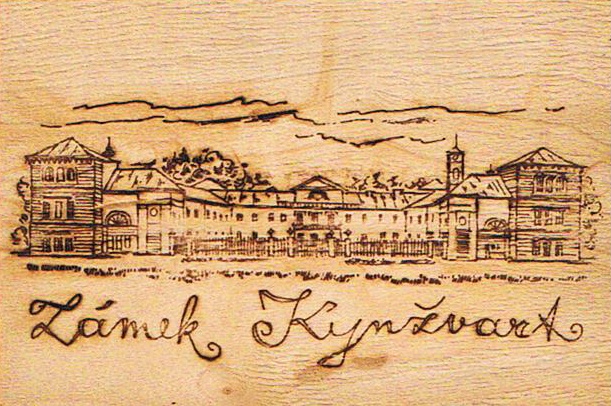 Zámek Kynžvart